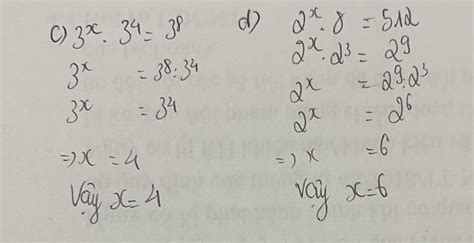 c) 3ˣ . 3⁴ = 3⁸
3ˣ = 3⁸ : 3⁴
3ˣ = 3⁴
=> x = 4
Vậy x = 4
d) 2ˣ . 8 = 512
2ˣ . 2³ = 2⁹
2ˣ = 2⁹ : 2³
2ˣ = 2⁶
=> x = 6
Vậy x = 6